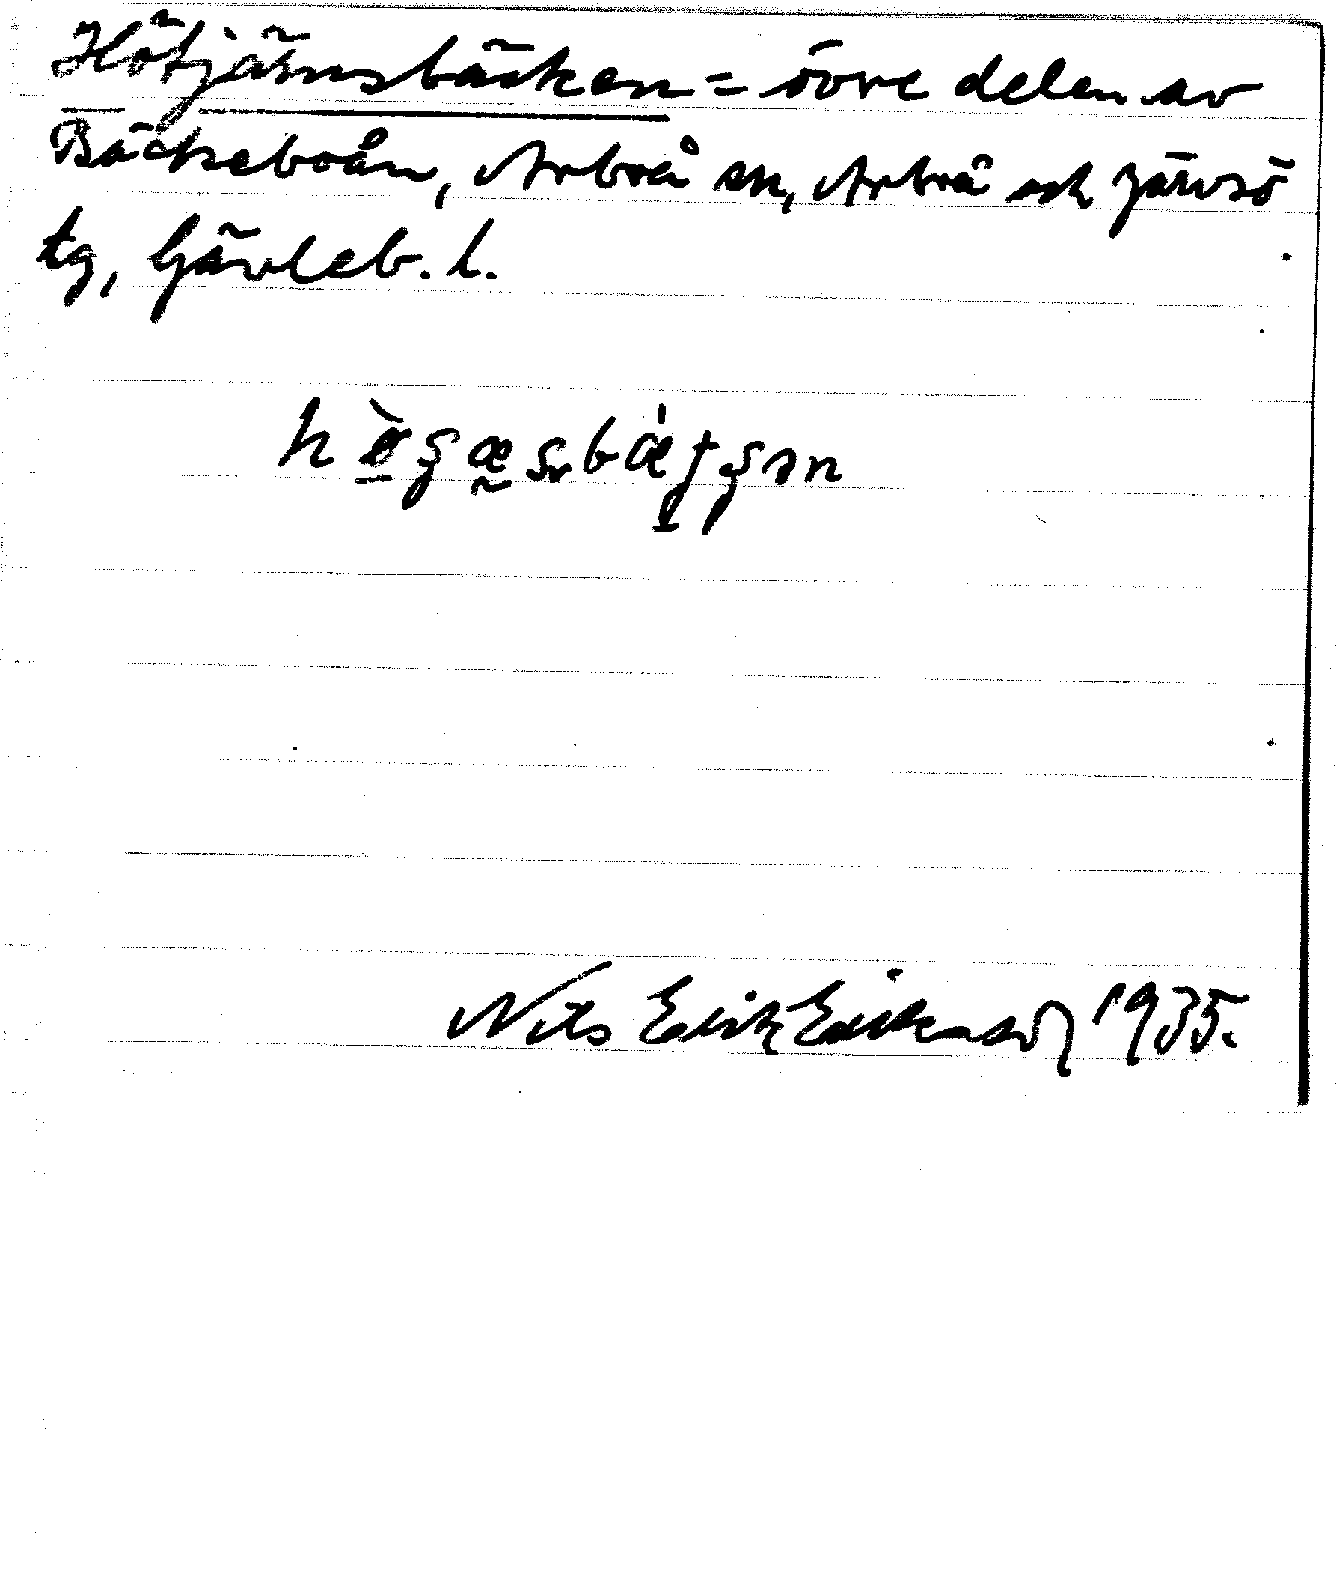 Hötjärnsbäcken = övre delen av
Bäckeboån, Arbrå sn, Arbrå och Järvsö
tg, Gävleb. l.
Nils Erik Eriksson 1935.